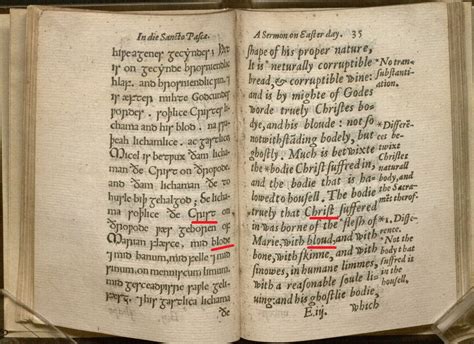 In die Sancto Pascæ.
agenes gecyndes
is on gecynde brosniendlic
and brosniendlic
is æfter mihte Godcundes
soþlice Cristes
hama and his blod. na
þeah lichamlice. ac
Micel is betwux ðam lichaman
ðe Crist on
and ðam lichaman ðe
to husle biþ gehalgod. Se
ma soþlice ðe Crist on
ðropode wæs geboren of
Marian flæsce, mid blode
mid banum, mid felle mid sinum
on menniscum limum, mid
and his gastlica lichama
ðe
A Sermon on Easter day. 35
shape of his proper nature,
It is naturally corruptible
bread, & corruptible wine:
and is by mighte of Godes
worde truely Christes bo-
dye, and his bloude: not so
notwithstāding bodely, but
ghostly. Much is betwixte
the bodie Christ suffred in,
and the bodie that is ha-
lowed to housell. The bodie
truely that Christ suffered
in was borne of the flesh of
Marie, with bloud, and with
bone, with skinne, and with
sinowes, in humane limmes,
with a reasonable soule li-
uing: and his ghostlie bodie,
E.iij. which
*No tran-
substanti-
ation.
*Differē-
ces be-
twixte
Christes
naturall
body, and
the Sacra-
mēt therof.
*1. Diffe-
rence.
*Not the
bodie that
suffred is
in the
housell.